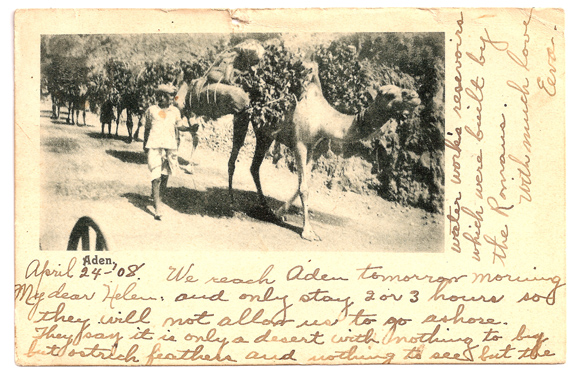 Aden.
April 24-08. We reach Aden tomorrow morning
My dear Helen: and only stay 2 or 3 hours so
they will not allow us to go ashore.
They say it is only a desert with nothing to buy
but ostrich feathers and nothing to see but the
water works reservoirs
which were built by
the Romans.
With much love
Eeva.